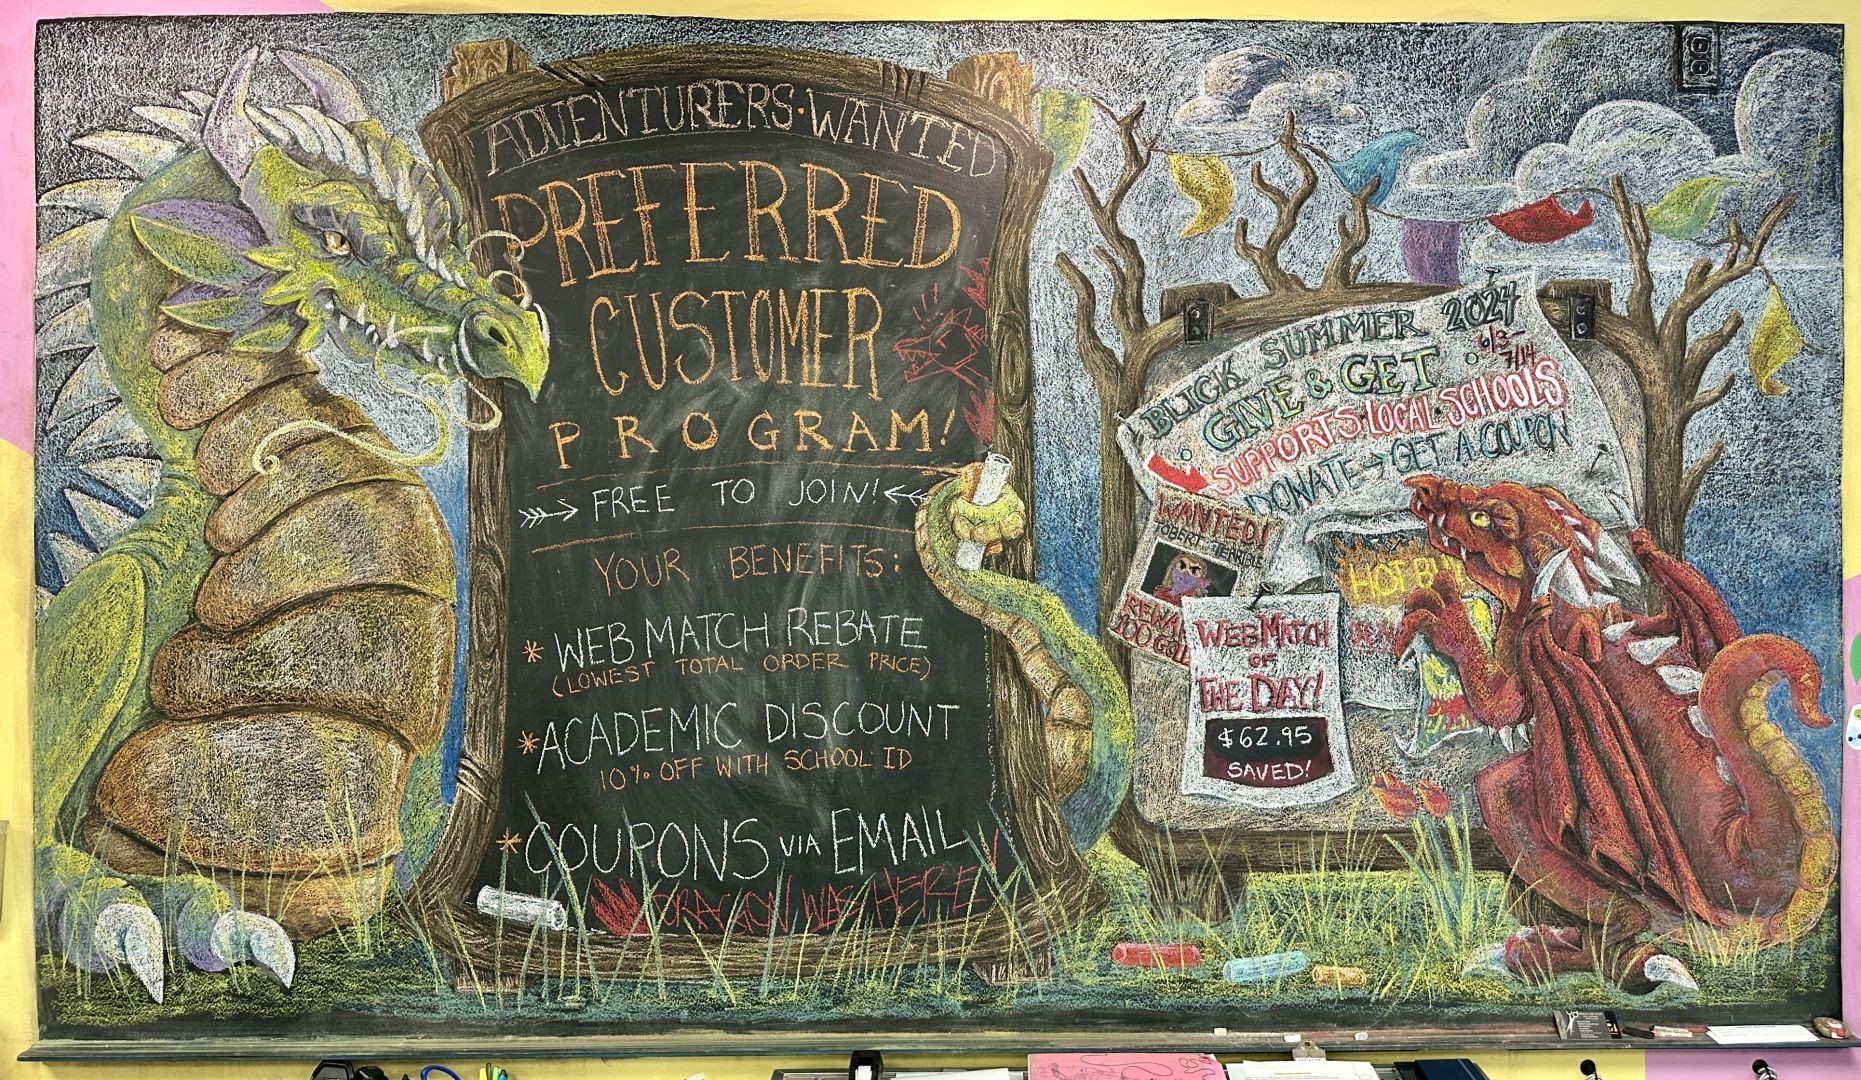 ADVENTURERS·WANTED
PREFERRED
CUSTOMER
PROGRAM!
FREE TO JOIN!
YOUR BENEFITS:
* WEB MATCH REBATE
(LOWEST TOTAL ORDER PRICE)
* ACADEMIC DISCOUNT
10% OFF WITH SCHOOL ID
* COUPONS VIA EMAIL
DRAGON WAS HERE!
BLICK SUMMER 2024
· GIVE & GET · 6/3-
7/14
SUPPORTS·LOCAL·SCHOOLS
DONATE → GET A COUPON
WANTED!
REWA
100 GOL
HOT BU
WEB MATCH
OF
THE DAY!
$62.95
SAVED!